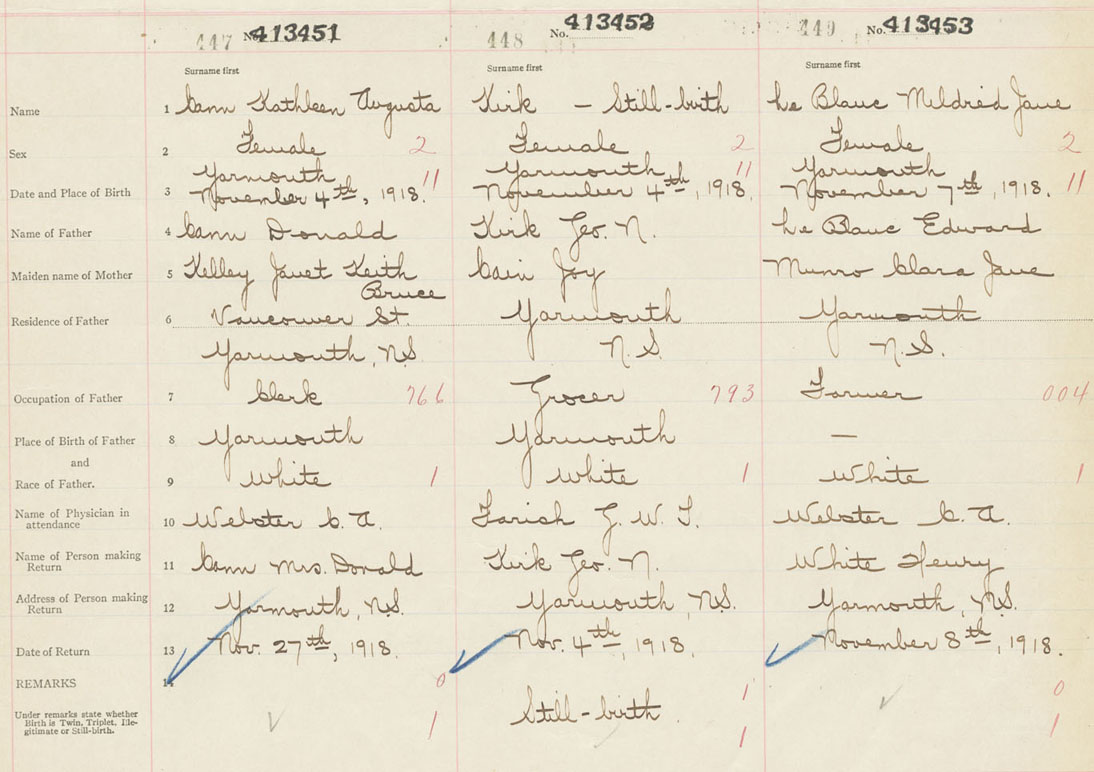 447 No. 413451 448 No. 413452 449 No. 413453
Surname first Surname first Surname first
Name 1 Cann Kathleen Augusta Kirk — Still-birth Le Blanc Mildred Jane
Sex 2 Female 2 Female 2 Female 2
Yarmouth 11 Yarmouth 11 Yarmouth
Date and Place of Birth 3 November 4th, 1918. November 4th, 1918. November 7th, 1918. 11
Name of Father 4 Cann Donald Kirk Geo. N. Le Blanc Edward
Maiden name of Mother 5 Kelley Janet Keith Cain Joy Munro Clara Jane
Bruce
Residence of Father 6 Vancouver St. Yarmouth Yarmouth
Yarmouth, N.S. N.S. N.S.
Occupation of Father 7 Clerk 766 Grocer 793 Farmer 004
Place of Birth of Father 8 Yarmouth Yarmouth —
and
Race of Father. 9 White 1 White 1 White 1
Name of Physician in
attendance 10 Webster C. A. Farish G. W. T. Webster C. A.
Name of Person making
Return 11 Cann Mrs. Donald Kirk Geo. N. White Henry
Address of Person making
Return 12 Yarmouth, N.S. Yarmouth, N.S. Yarmouth, N.S.
Date of Return 13 Nov. 27th, 1918. Nov. 4th, 1918. November 8th, 1918.
REMARKS 14 0 1 0
Under remarks state whether
Birth is Twin, Triplet, Ille-
gitimate or Still-birth. 1 Still-birth. 1 1